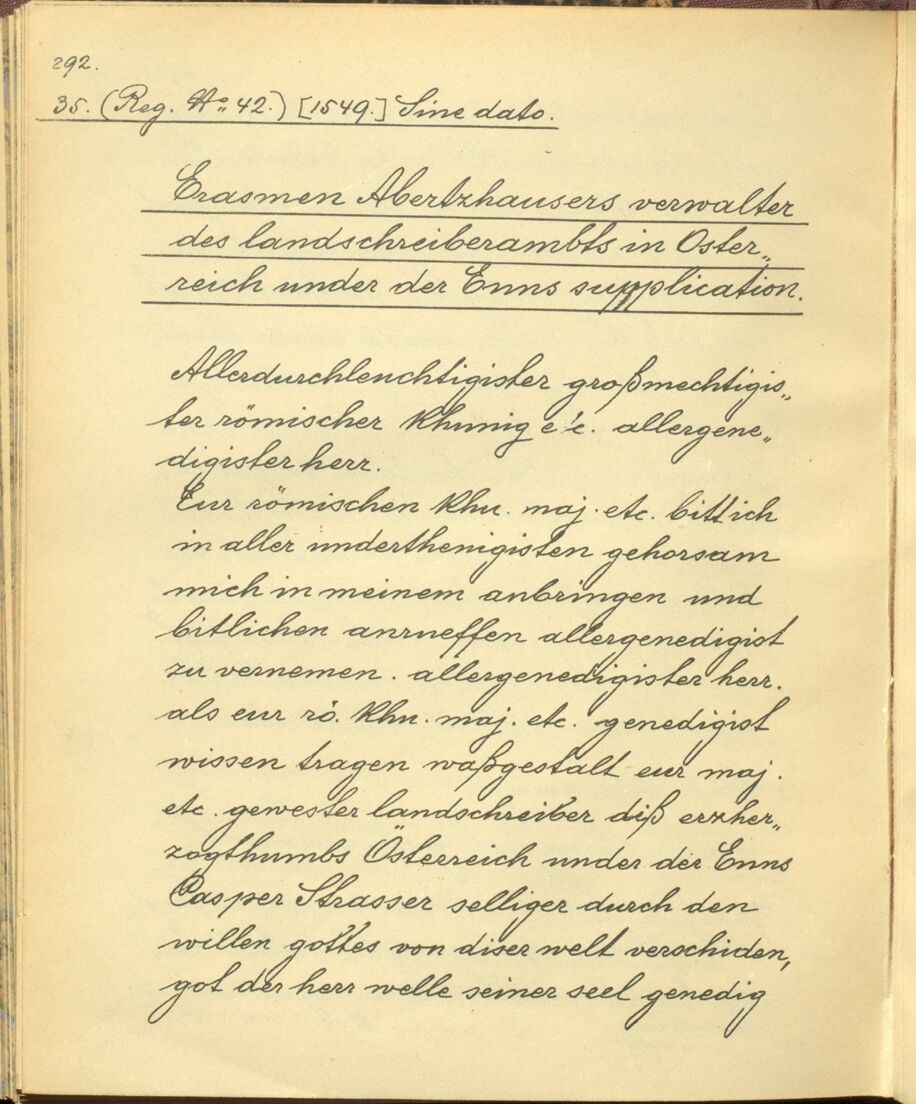 292.
35. (Reg. No. 42.) [1549.] Sine dato.
Erasmen Abertzhausers verwalter
des landschreiberambts in Öster„
reich under der Enns supplication.
Allerdurchleuchtigister großmechtigis„
ter römischer Khunig etc. allergene„
digister herr.
Eur römischen Khu. maj. etc. bitt ich
in aller underthenigisten gehorsam
mich in meinem anbringen und
bitlichen anrueffen allergenedigist
zu vernemen. allergenedigister herr.
als eur rö. Khu. maj. etc. genedigist
wissen tragen waßgestalt eur maj.
etc. gewester landschreiber diß erzher„
zogthumbs Österreich under der Enns
Casper Strasser selliger durch den
willen gottes von diser welt verschiden,
got der herr welle seiner seel genedig